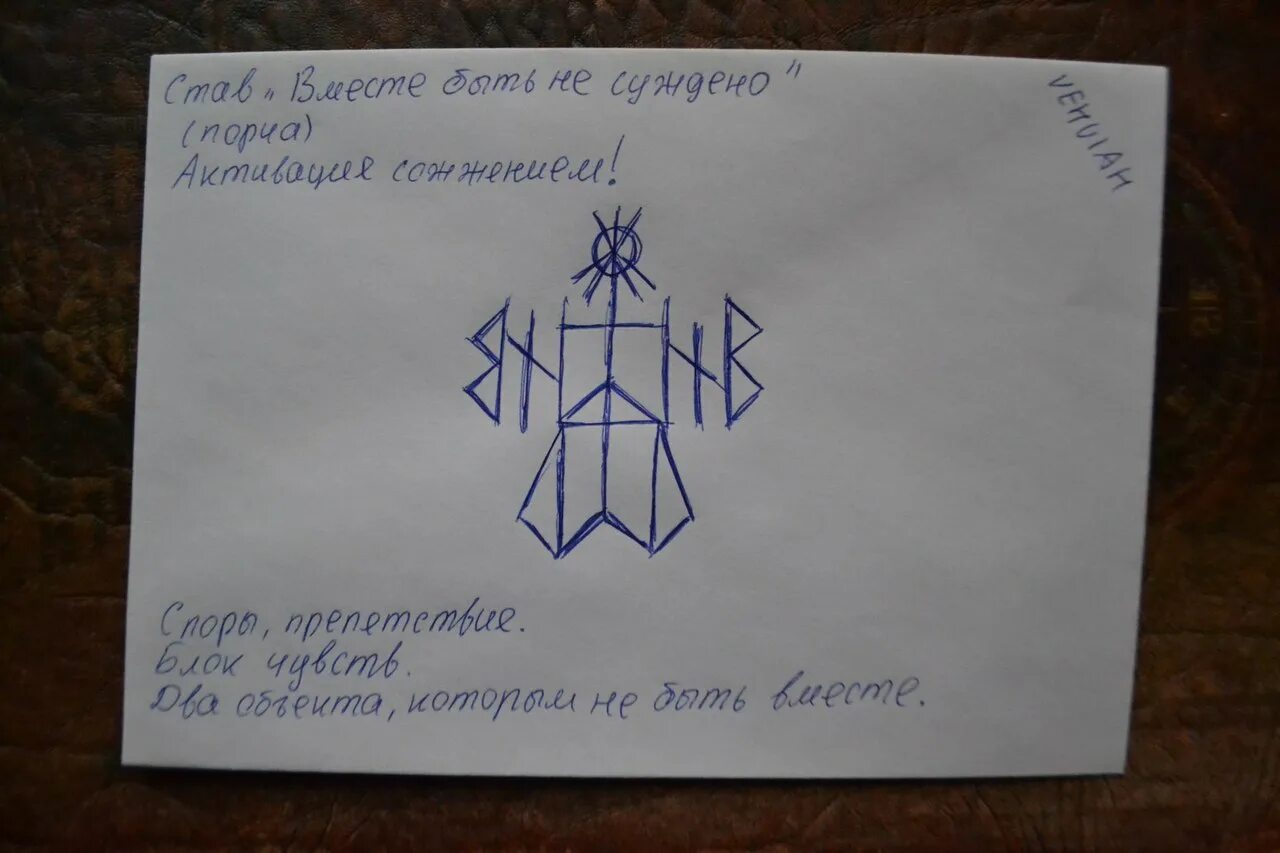 Став „Вместе быть не суждено"
(порча)
Активация сожжением!
VEHUIAH
Споры, препетствие.
Блок чувств.
Два объекта, которым не быть вместе.